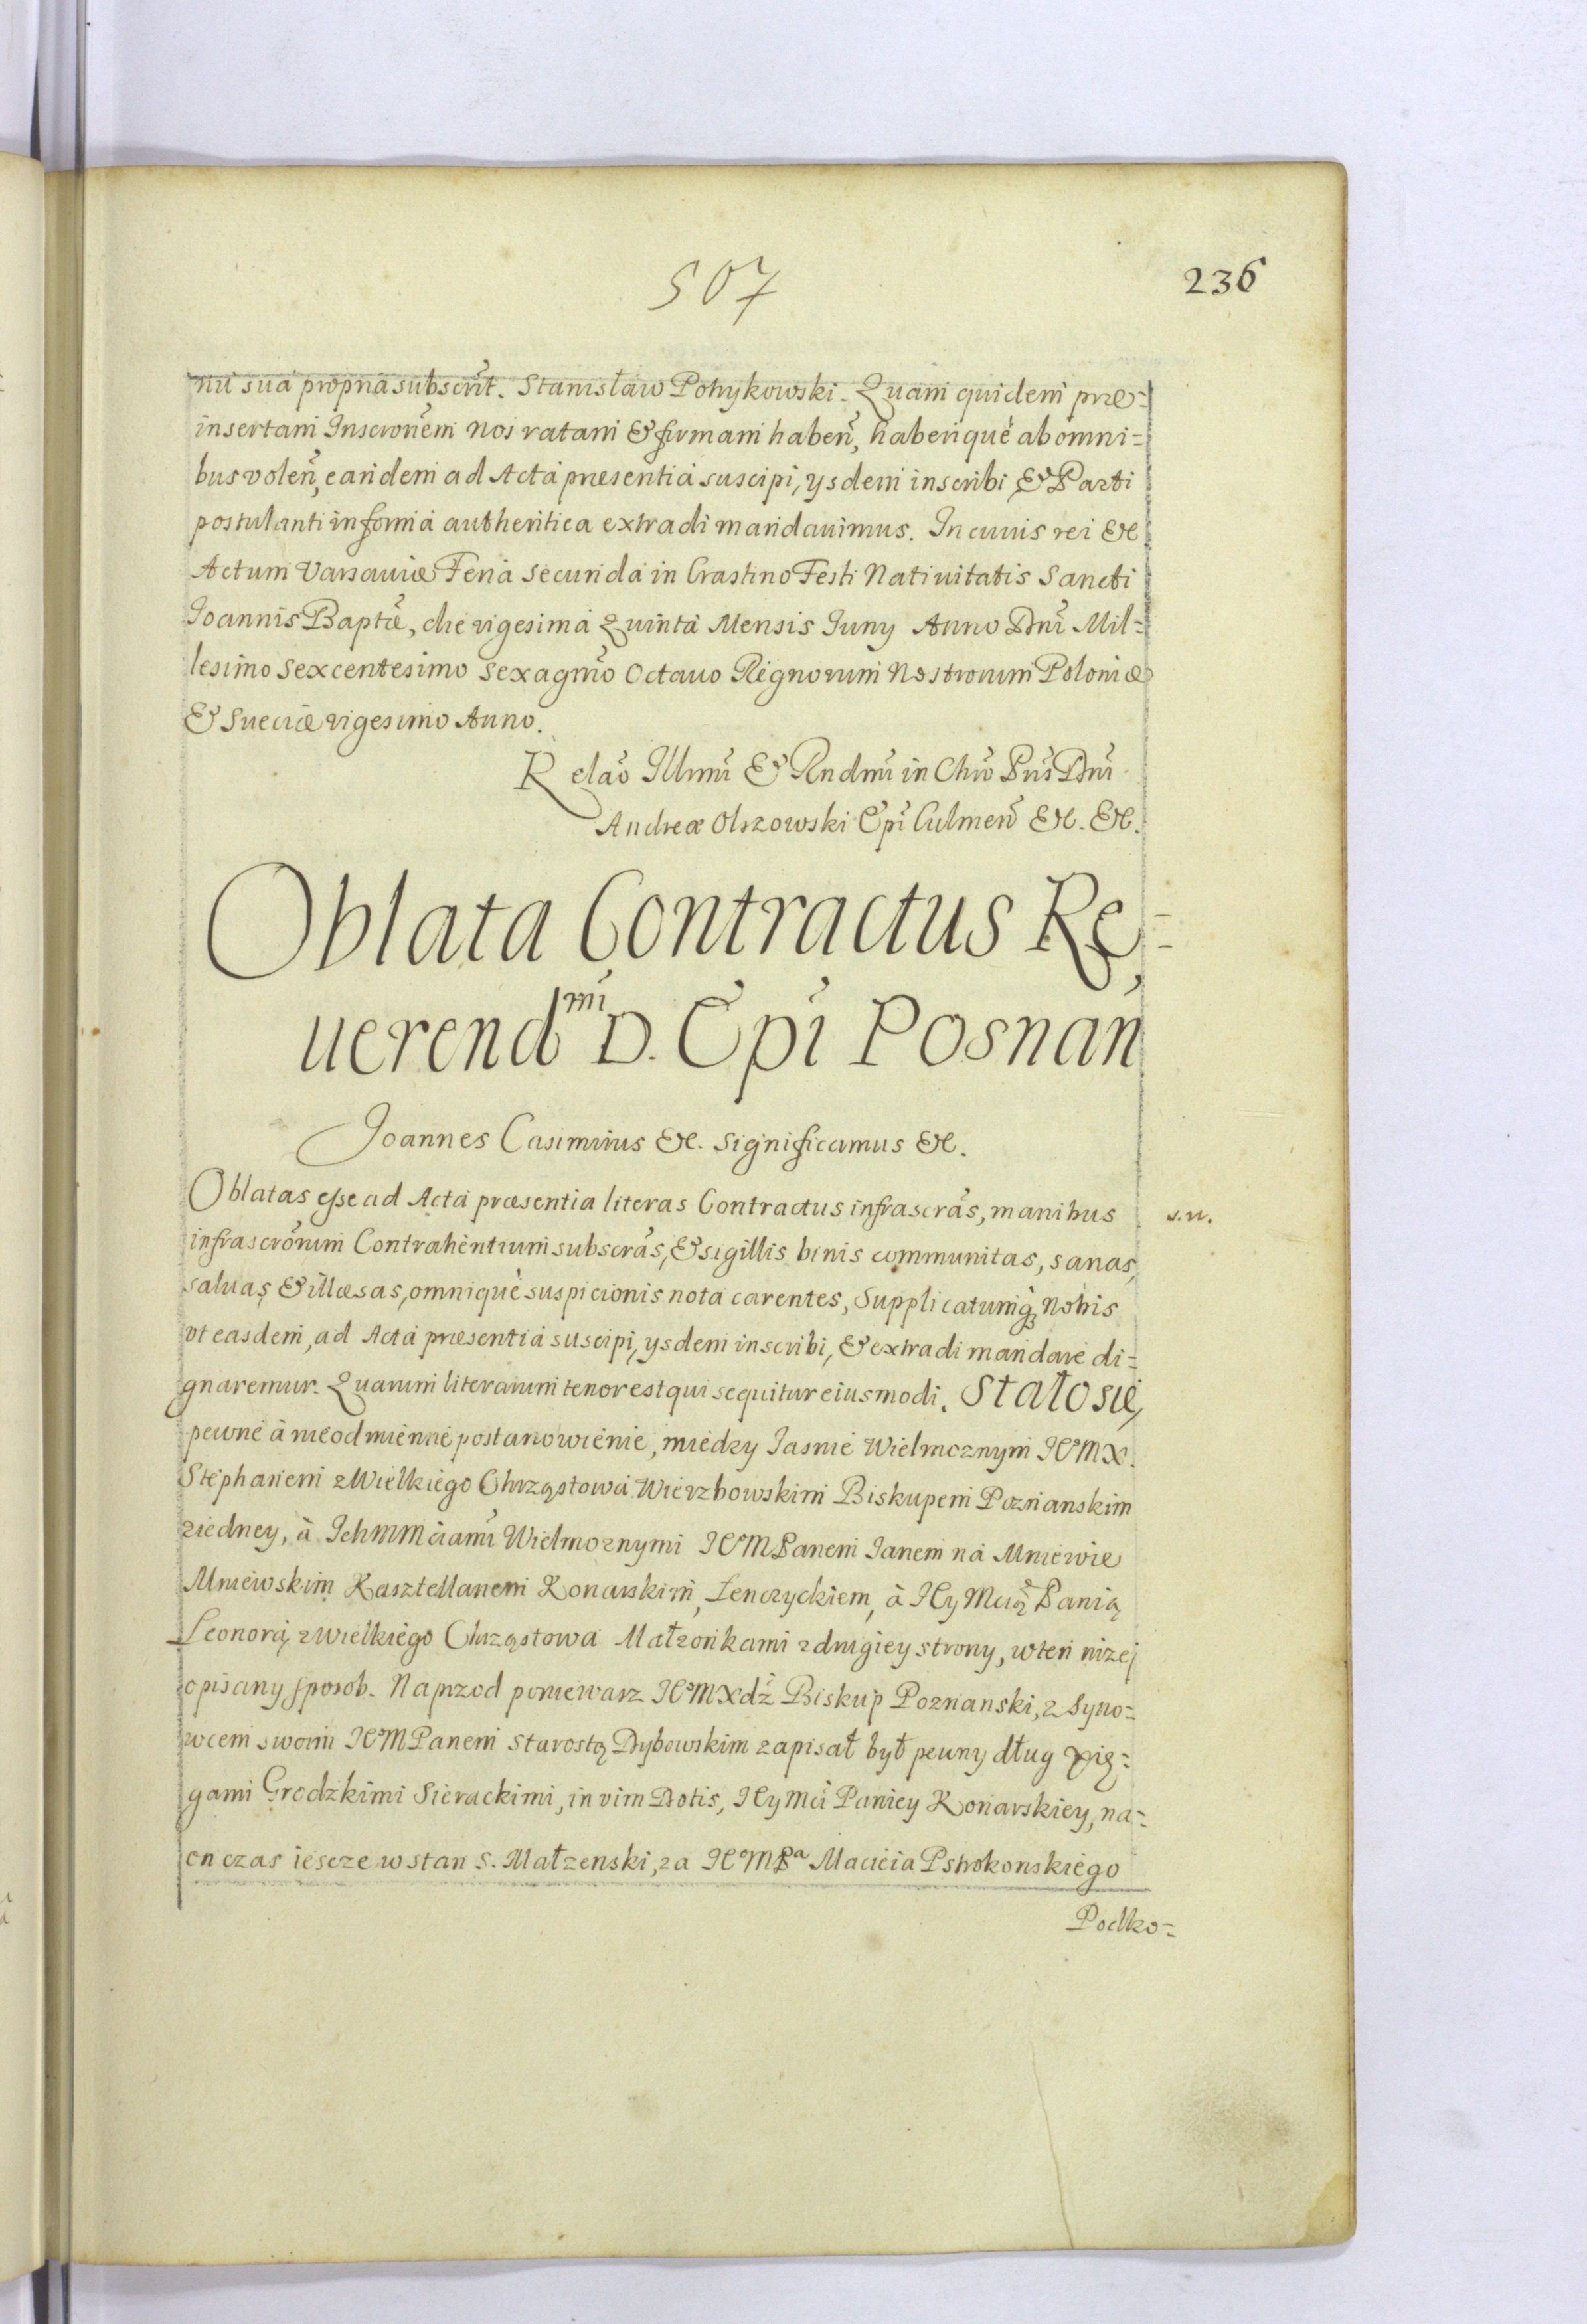 507
236
nu sua propria subscrit. Stanisław Potrykowski. Quam quidem præ=
insertam Inscrōnem Nos ratam & firmam haben̄, haberique ab omni=
bus volen̄, eandem ad Acta præsentia suscipi, ysdem inscribi & Parti
postulanti in forma authentica extradi mandauimus. In cuius rei &c
Actum Varsauiæ Feria secunda in Crastino Festi Natiuitatis Sancti
Joannis Baptæ, die vigesima Quinta Mensis Juny Anno Dni Mil=
lesimo Sexcentesimo Sexagmo Octauo Regnorum Nostrorum Poloniæ
& Sueciæ vigesimo Anno.
Relao Illmi & Rndmi in Chro Pris Dni
Andreæ Olszowski Epi Culmen̄ &c. &c.
Oblata Contractus Re=
uerendmi D. Epi Posnan
Joannes Casimirus &c. Significamus &c.
Oblatas esse ad Acta præsentia literas Contractus infrascras, manibus
s.n.
infrascrorum Contrahentium subscras, & sigillis binis communitas, sanas,
saluas & illæsas, omnique suspicionis nota carentes, Supplicatumq Nobis
vt easdem, ad Acta præsentia suscipi, ysdem inscribi, & extradi mandare di=
gnaremur. Quarum literarum tenor est qui sequitur eiusmodi. Stało się,
pewne à nieodmienne postanowienie, miedzy Jasnie Wielmoznym JeoMX.
Stephanem z Wielkiego Chrząstowa Wierzbowskim Biskupem Poznanskim
ziedney, à JchMMciami Wielmoznymi JeoMPanem Janem na Mniewie
Mniewskim Kasztellanem Konarskim, Lenczyckiem, à JeyMcią Panią
Leonorą z wielkiego Chrząstowa Małzonkami z drugiey strony, w ten nizej
opisany sposob. Naprzod poniewarz JeoMXdz Biskup Poznanski, z Syno=
wcem swoim JeoMPanem Starostą Dybowskim zapisał był pewny dług xię=
gami Grodzkimi Sierackimi, in vim Dotis, JeyMci Paniey Konarskiey, na=
on czas iescze w stan S. Małzenski, za JeoMPa Macieia Pstrokonskiego
Podko=